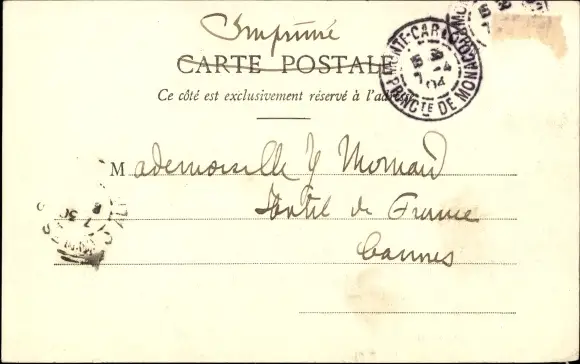 Imprimé
CARTE POSTALE
Ce côté est exclusivement réservé à l'adresse
MONTE-CARLO
PRINCTE DE MONACO
Mademoiselle Y Mornard
Hotel de France
Cannes